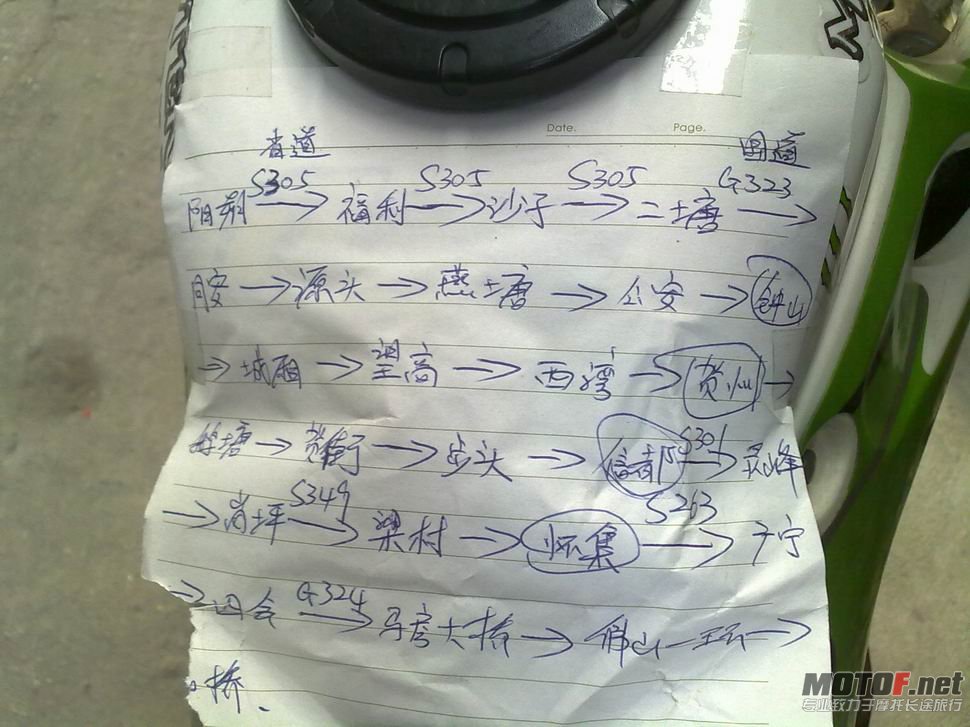 Date. Page.
省道 国道
S305 S305 S305 G323
阳朔 → 福利 → 沙子 → 二塘 →
同安 → 源头 → 燕塘 → 公安 → 钟山
→ 城厢 → 望高 → 西湾 → 贺州 →
塘 → 贺街 → 步头 → 信都 S301 → 灵峰
→ 岗坪 S349 → 梁村 → 怀集 S263 → 宁
→ 四会 G324 → 马房大桥 → 佛山一环 →
桥.
MOTOF.net
专业致力于摩托长途旅行